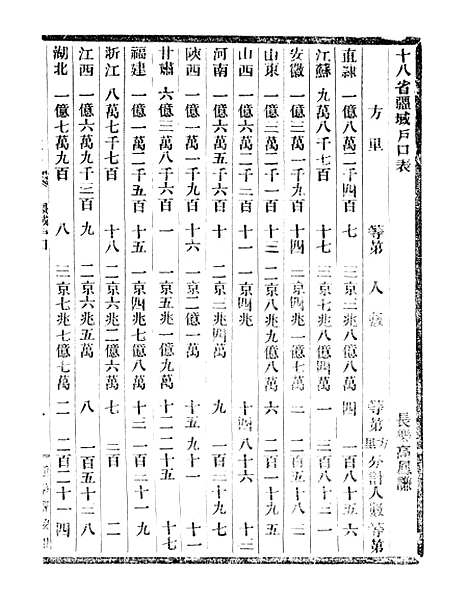 十八省疆域戶口表
長樂高鳳謙
方里 等第 人數 等第 方里分計人數 等第
直隸 一億八萬二千四百 七 二京三兆八億八萬 四 一百八十五 六
江蘇 九萬八千七百 十七 三京七兆八億八萬 一 三百八十三 一
安徽 一億一萬一千九百 十四 二京四兆一億七萬 三 二百十八 五
山東 一億三萬二千六百 十三 二京八兆九億八萬 六 二百十九 五
山西 一億一萬二千六百 十一 一京四兆 十四 八十六 十三
河南 一億六萬五千六百 十 二京三兆四萬 九 一百三十九 七
陝西 一億一萬一千九百 十六 一京二億一萬 十五 九十一 十一
甘肅 六億三萬八千六百 一 一京五兆一億九萬 十二 二十五 十七
福建 一億一萬二千五百 十五 一京四兆七億八萬 十三 一百三十一 九
浙江 八萬七千七百 十八 二京六兆二億六萬 七 三百 二
江西 一億六萬九千三百 九 二京六兆五萬 八 一百五十三 八
湖北 一億七萬九百 八 三京七兆七億七萬 二 二百二十一 四